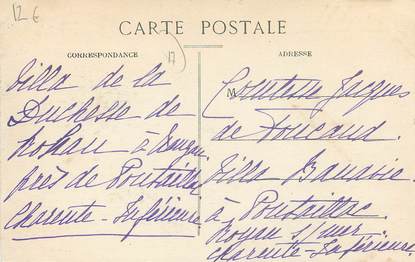 12 €
CARTE POSTALE
CORRESPONDANCE
17)
ADRESSE
Villa de la
Duchesse de
Rohan à
près de Pontaillac
Charente-Inférieure
M Comtesse Jacques
de Foucaud
Villa
à Pontaillac
Royan s/ mer
Charente-Inférieure